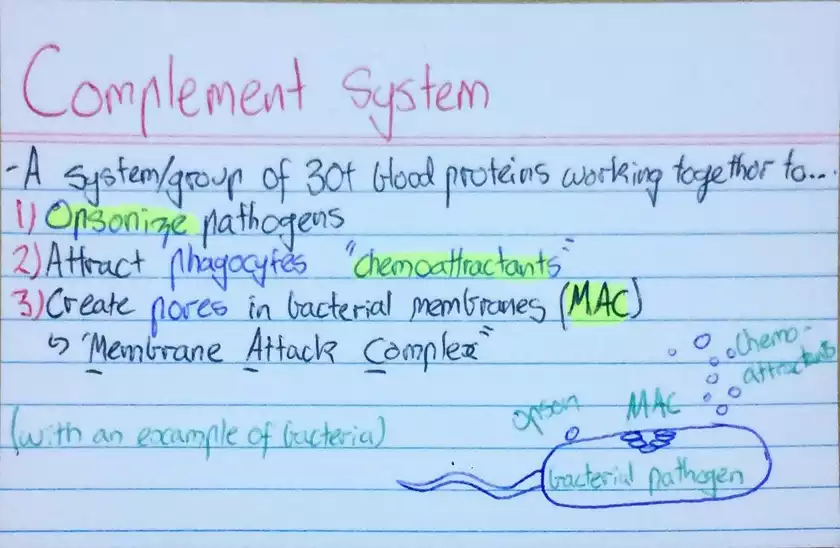 Complement System
- A system/group of 30+ blood proteins working together to...
1) Opsonize pathogens
2) Attract phagocytes "chemoattractants"
3) Create pores in bacterial membranes (MAC)
↳ "Membrane Attack Complex"
chemo-
attractants
opson
MAC
(with an example of bacteria)
bacterial pathogen